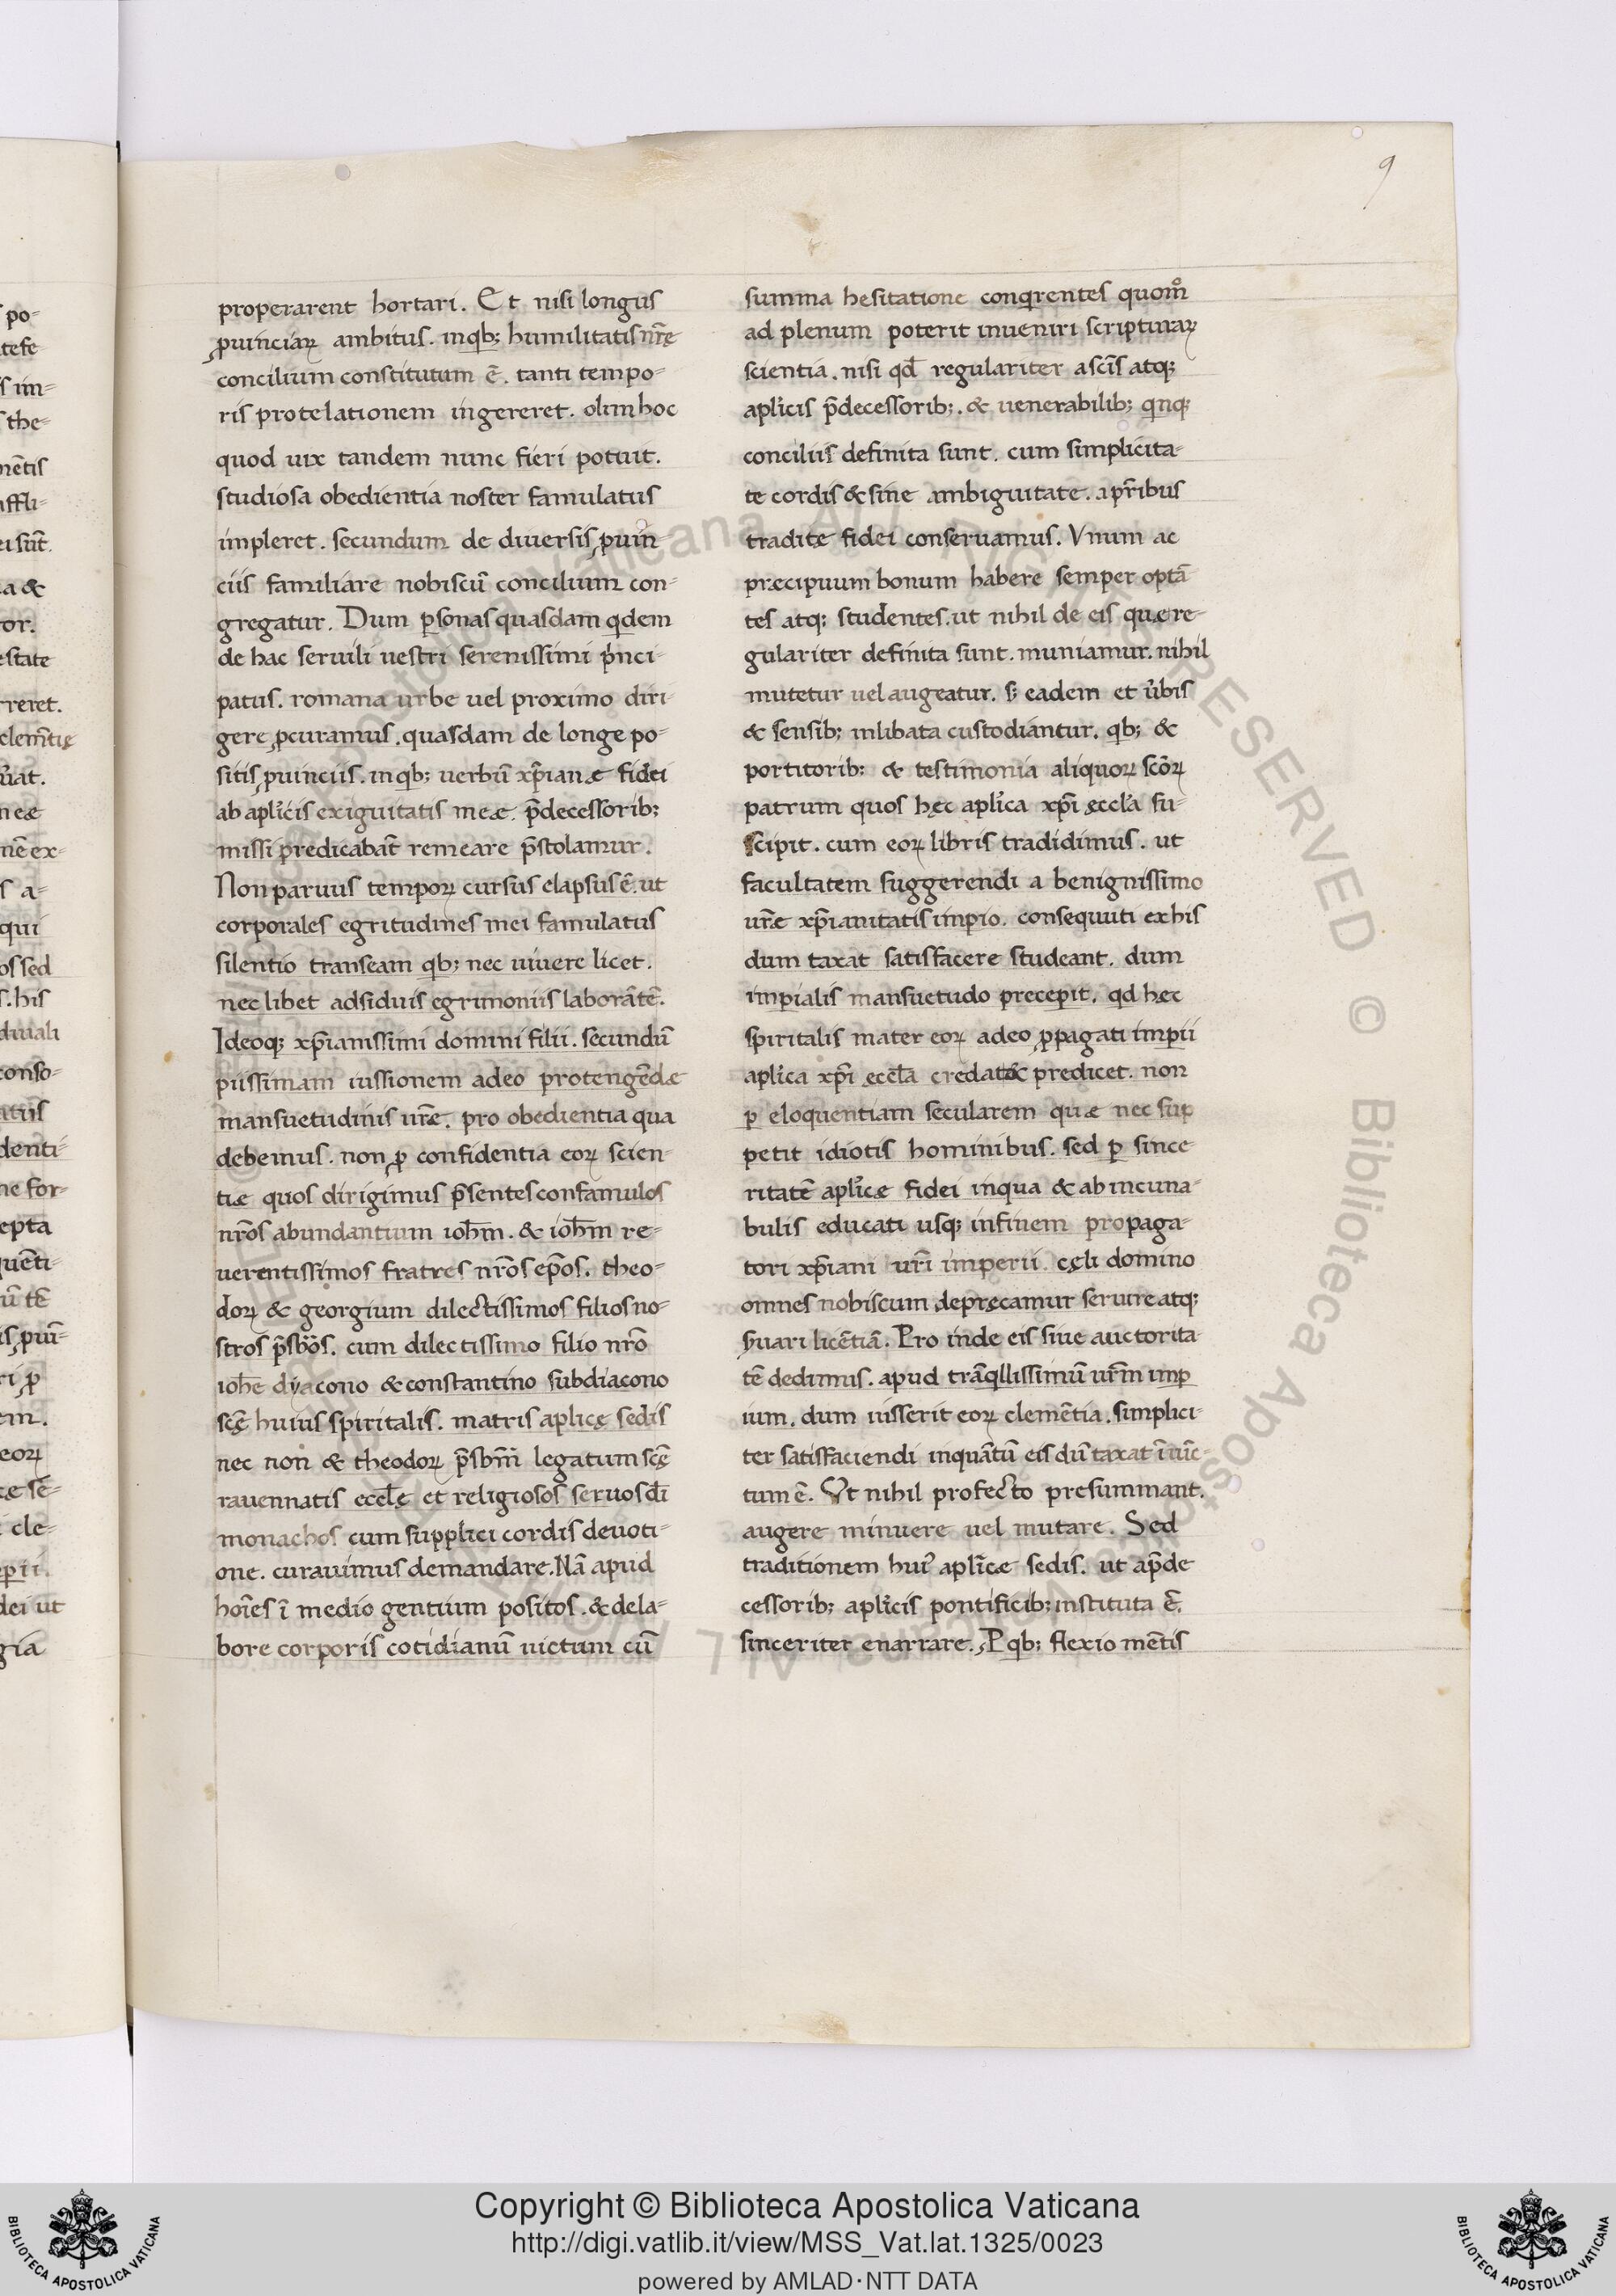 9
properarent hortari. Et nisi longus
ꝓuinciaꝝ ambitus. inqb; humilitatis nr̄ę
concilium constitutum ē. tanti tempo-
ris protelationem ingereret. olim hoc
quod uix tandem nunc fieri potuit.
studiosa obedientia noster famulatus
impleret. secundum de diuersis ꝓuin-
ciis familiare nobiscū concilium con-
gregatur. Dum ꝑsonas quasdam qdem
de hac seruili uestri serenissimi pͥnci-
patus. romana urbe uel proximo diri-
gere ꝓcuramus. quasdam de longe po-
sitis ꝓuinciis. inqb; uerbū xp̄ianæ fidei
ab aplicis exiguitatis meæ. p̄decessorib;
missi predicabāt remeare p̄stolamur.
Non paruus tempoꝝ cursus elapsus ē. ut
corporales egritudines mei famulatus
silentio transeam qb; nec uiuere licet.
nec libet adsiduis egrimoniis laborātē.
Ideoq; xp̄ianissimi domini filii. secundū
piissimam iussionem adeo protengēdæ
mansuetudinis ur̄æ. pro obedientia qua
debemus. non ꝓ confidentia eoꝝ scien-
tiæ quos dirigimus p̄sentes confamulos
nr̄os abundantium ioh̄m. & ioh̄m re-
uerentissimos fratres nr̄os ep̄os. theo-
doꝝ & georgium dilectissimos filios no-
stros p̄sb̄os. cum dilectissimo filio nr̄o
ioh̄e dyacono & constantino subdiacono
scę̄ huius spiritalis. matris aplicę sedis
nec non & theodoꝝ p̄sb̄m legatum scę̄
rauennatis eccl̄ę et religiosos seruos dī
monachos cum supplici cordis deuoti-
one. curauimus demandare. Nā apud
hoīes ī medio gentium positos. & dela-
bore corporis cotidianū uictum cū
summa hesitatione conqrentes quom̊
ad plenum poterit inueniri scripturaꝝ
scientia. nisi qd̄ regulariter a scīs atq;
aplicis p̄decessorib;. & uenerabilib; qnq;
conciliis definita sunt. cum simplicita-
te cordis & sine ambiguitate. apr̄ibus
traditę fidei conseruamus. Vnum ac
præcipuum bonum habere semper optā
tes atq; studentes. ut nihil de eis quæ re-
gulariter definita sunt. muniamur. nihil
mutetur uel augeatur. s; eadem et u̓bis
& sensib; inlibata custodiantur. qb; &
portitorib; & testimonia aliquoꝝ scōꝝ
patrum quos hęc aplica xp̄i ęccl̓a su-
scipit. cum eoꝝ libris tradidimus. ut
facultatem suggerendi a benignissimo
ur̄æ xp̄ianitatis imꝑio. consequuti ex his
dum taxat satisfacere studeant. dum
imꝑialis mansuetudo precepit. qd hęc
spiritalis mater eoꝝ adeo ꝓpagati imꝑii
aplica xp̄i eccl̄a credat & predicet. non
ꝑ eloquentiam secularem quæ nec sup
petit idiotis hominibus. sed ꝑ since
ritatē aplicæ fidei inqua & ab incuna-
bulis educati usq; infinem propaga-
tori xp̄iani ur̄i imperii. cęli domino
omnes nobiscum deprecamur seruire atq;
licētiā. Pro inde eis siue auctorita
tē dedimus. apud trāqllissimū ur̄m imꝑ
ium. dum iusserit eoꝝ clemētia. simplici-
ter satisfaciendi inquātū eis dū taxat ī iūc-
tum ē. Vt nihil profecto presummant.
augere minuere uel mutare. Sed
traditionem hui᾽ aplicæ sedis. ut ap̄de
cessorib; aplicis pontificib; instituta ē.
sinceriter enarrare. P qb; flexio mētis
Copyright © Biblioteca Apostolica Vaticana
http://digi.vatlib.it/view/MSS_Vat.lat.1325/0023
powered by AMLAD·NTT DATA
BIBLIOTECA APOSTOLICA VATICANA
BIBLIOTECA APOSTOLICA VATICANA